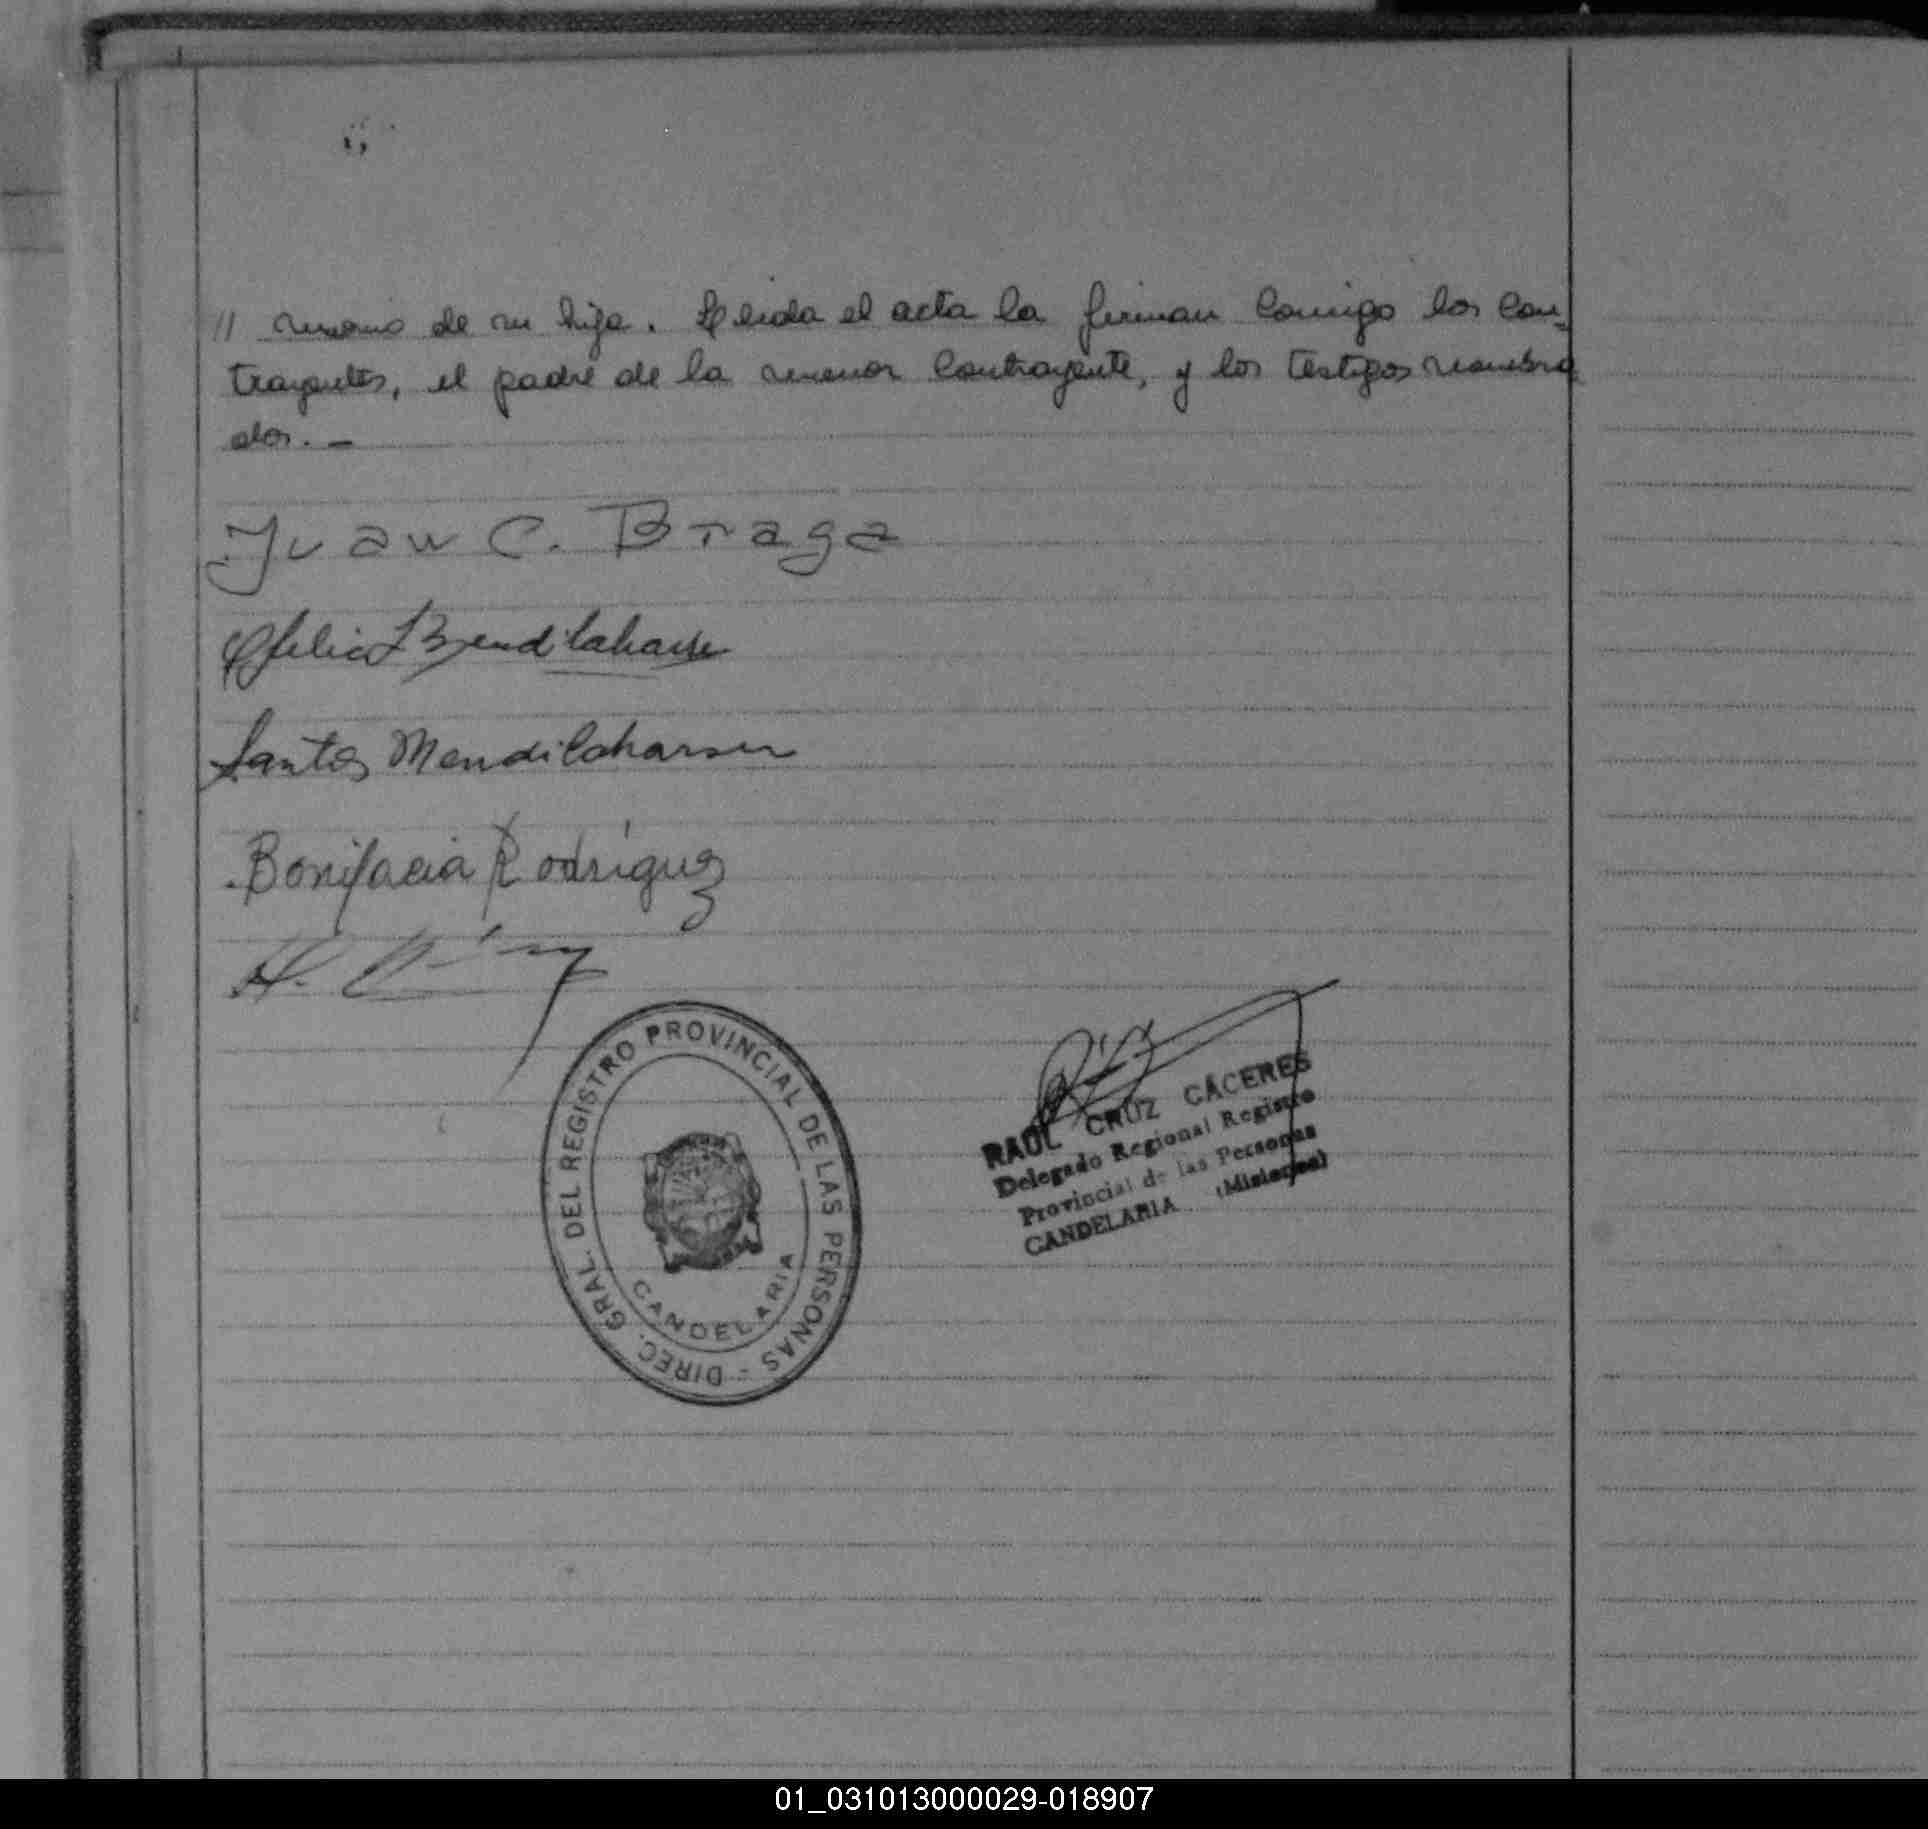 // monio de su hija. Leida el acta la firman comigo los con-
trayentes, el padre de la menor contrayente, y los testigos nombra
dos. -
Juan C. Braga
Santos Mendilaharsu
Bonifacia Rodríguez
DIREC. GRAL. DEL REGISTRO PROVINCIAL DE LAS PERSONAS -
CANDELARIA
RAUL CRUZ CÁCERES
Delegado Regional Registro
Provincial de las Personas
CANDELARIA (Misiones)
01_031013000029-018907